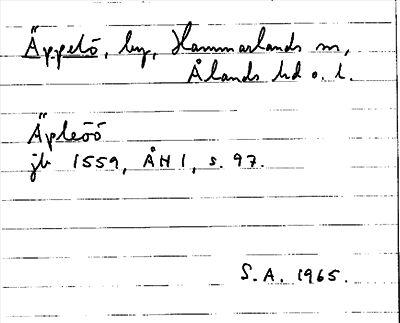 Äppelö, by, Hammarlands sn,
Ålands hd o. l.
Äpleöö
jb 1559, ÅH 1, s. 97.
S. A. 1965.